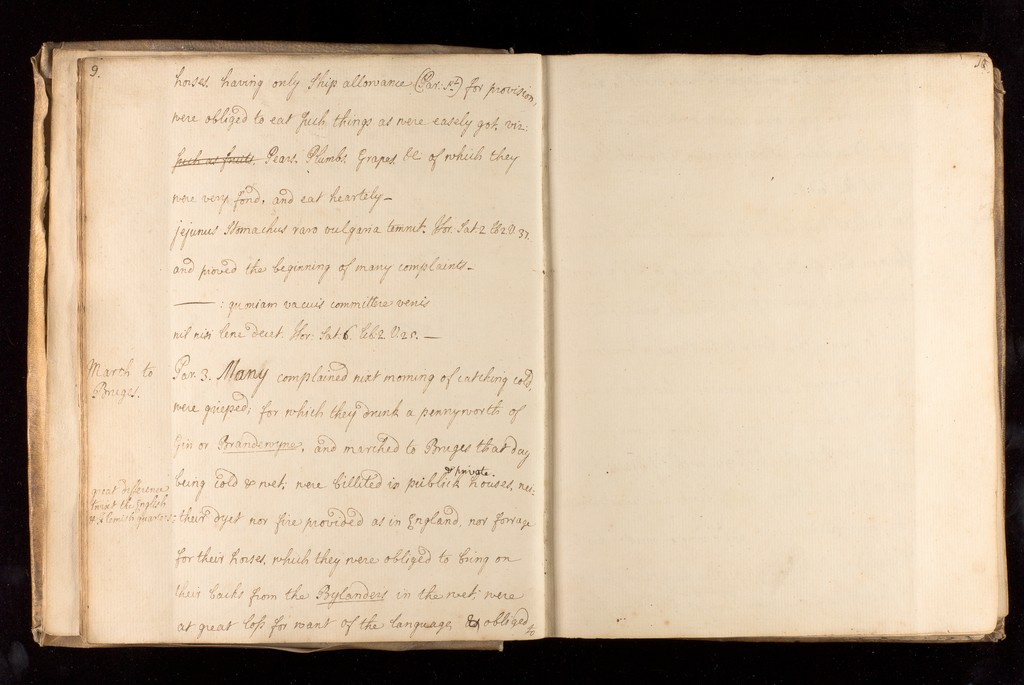 9.
horses, having only Ship allowance (Par. 1st) for provision,
were obliged to eat such things as were easely got, viz.
such as fruits, Pears, Plumbs, Grapes, &c of which they
were very fond, and eat heartely—
jejunus Stomachus raro vulgaria temnit. Hor. Sat. 2. lib. 2. V. 37.
and proved the beginning of many complaints—
—— : quoniam vacuis committere venis
nil nisi lene decet. Hor. Sat. 6. Lib. 2. V. 25. —
March to
Bruges.
Par. 3. Many complained next morning of catching cold,
were grieped; for which they drunk a pennyworth of
Gin or Brandewyne, and marched to Bruges that day
& private.
being cold & wet, were billited in publick houses, nei:
great difference
twixt the English
& Flemish quarters;
their dyet nor fire provided as in England, nor forrage
for their horses, which they were obliged to bring on
their backs from the Bylanders in the wet; were
at great loss for want of the language, & obliged
to